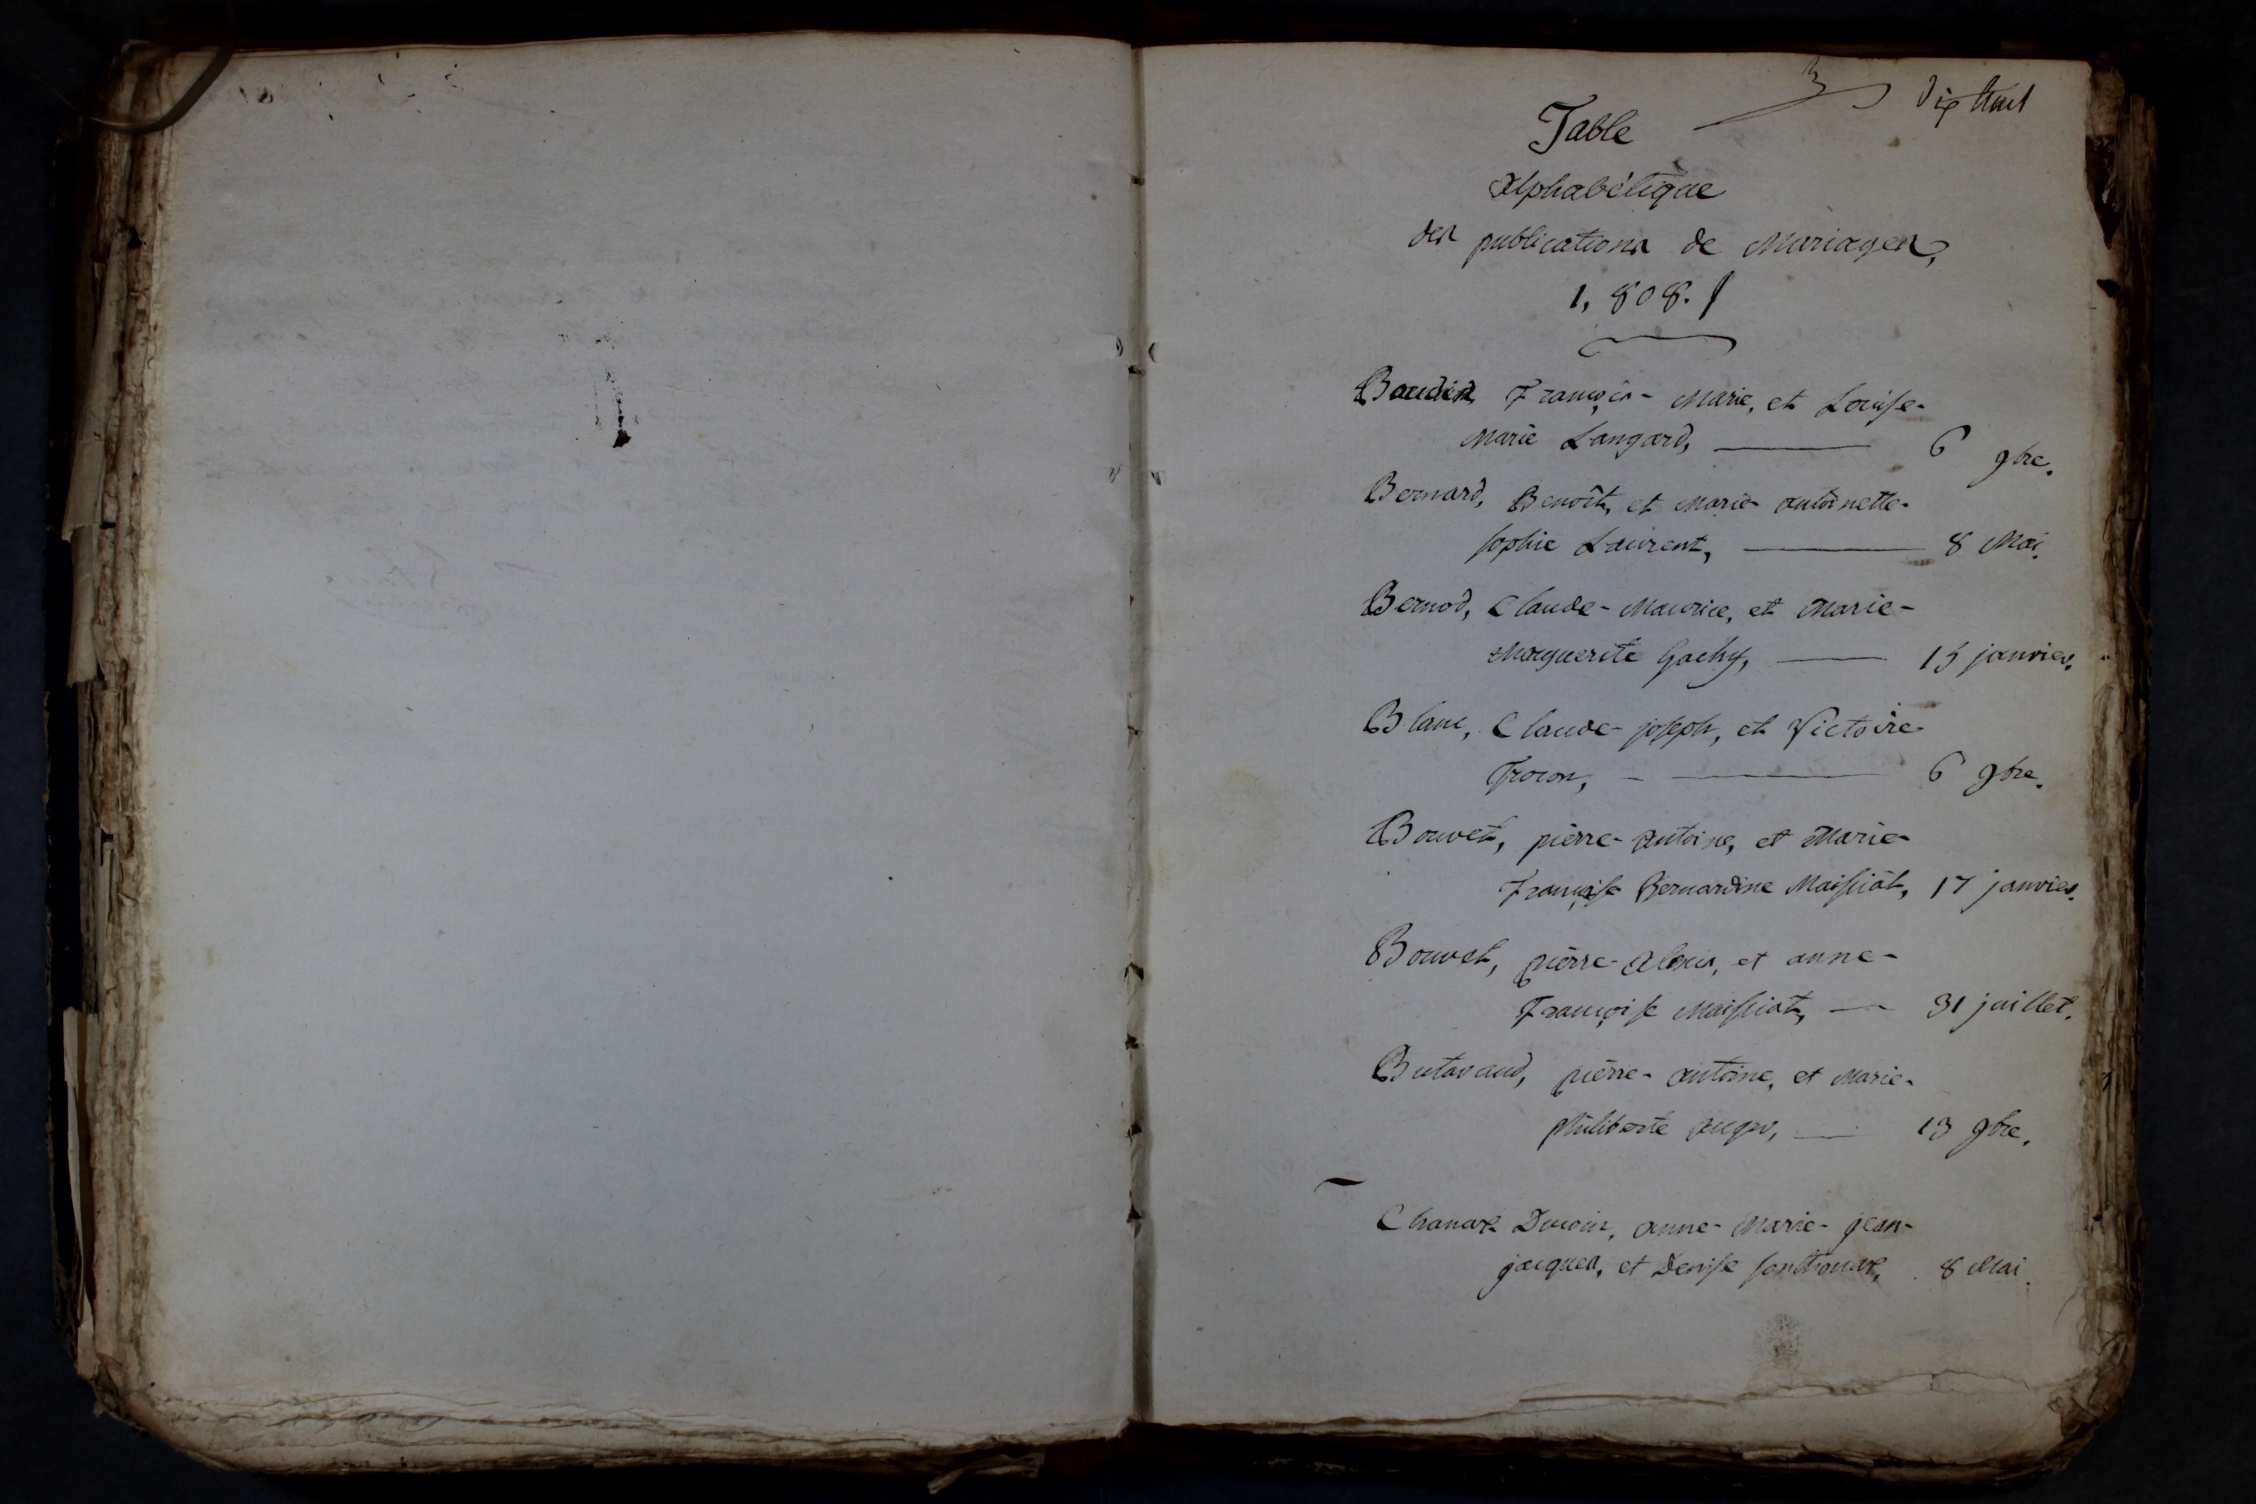 dix huit
Table
alphabétique
des publications de Mariages,
1,808.
Baudin François-Marie, et Louise-
Marie Langard, 6 9bre.
Bernard, Benoît, et Marie antoinette-
sophie Laurent, 8 Mai.
Bernod, Claude-Maurice, et Marie-
Marguerite Gachy, 15 janvier.
Blanc, Claude-joseph, et Victoire
6 9bre.
Bouvet, pierre-antoine, et Marie-
Françoise Bernardine Maissiat, 17 janvier.
Bouvet, pierre-alexis, et anne-
Françoise Maissiat, 31 juillet.
Butavand, pierre-antoine, et Marie-
philiberte auger, 13 9bre.
Chanax anne-Marie-jean-
jacques, et Denise sonthonax, 8 Mai.